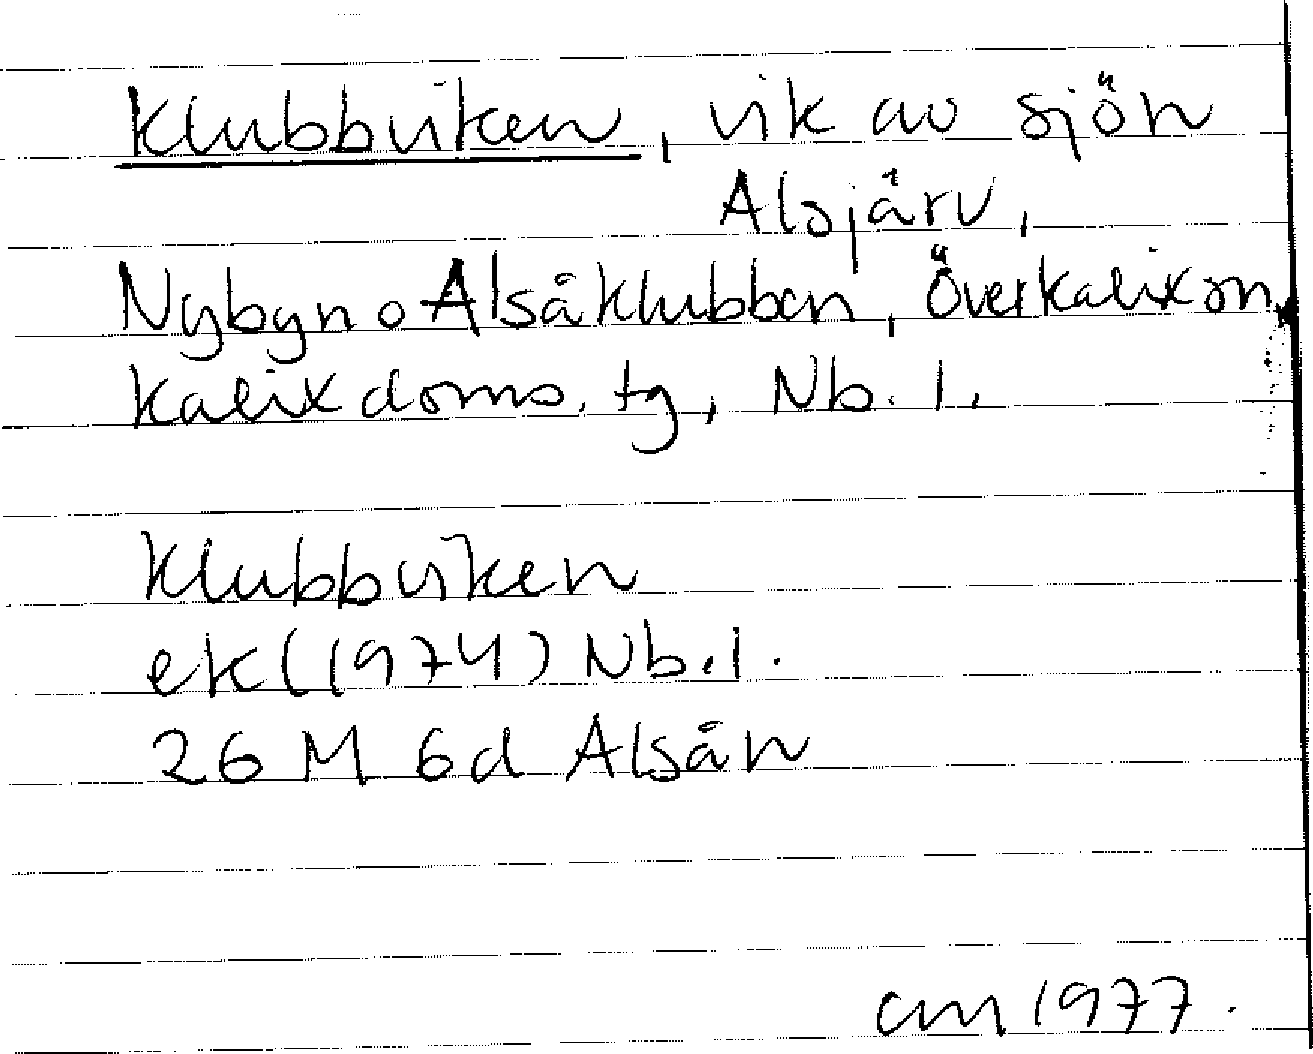 Klubbviken, vik av sjön
Alsjärv,
Nybyn o Alsåklubben, Överkalix sn,
Kalix doms. tg, Nb. l.
Klubbviken
ek (1974) Nb. l.
26 M 6d Alsån
cm 1977.